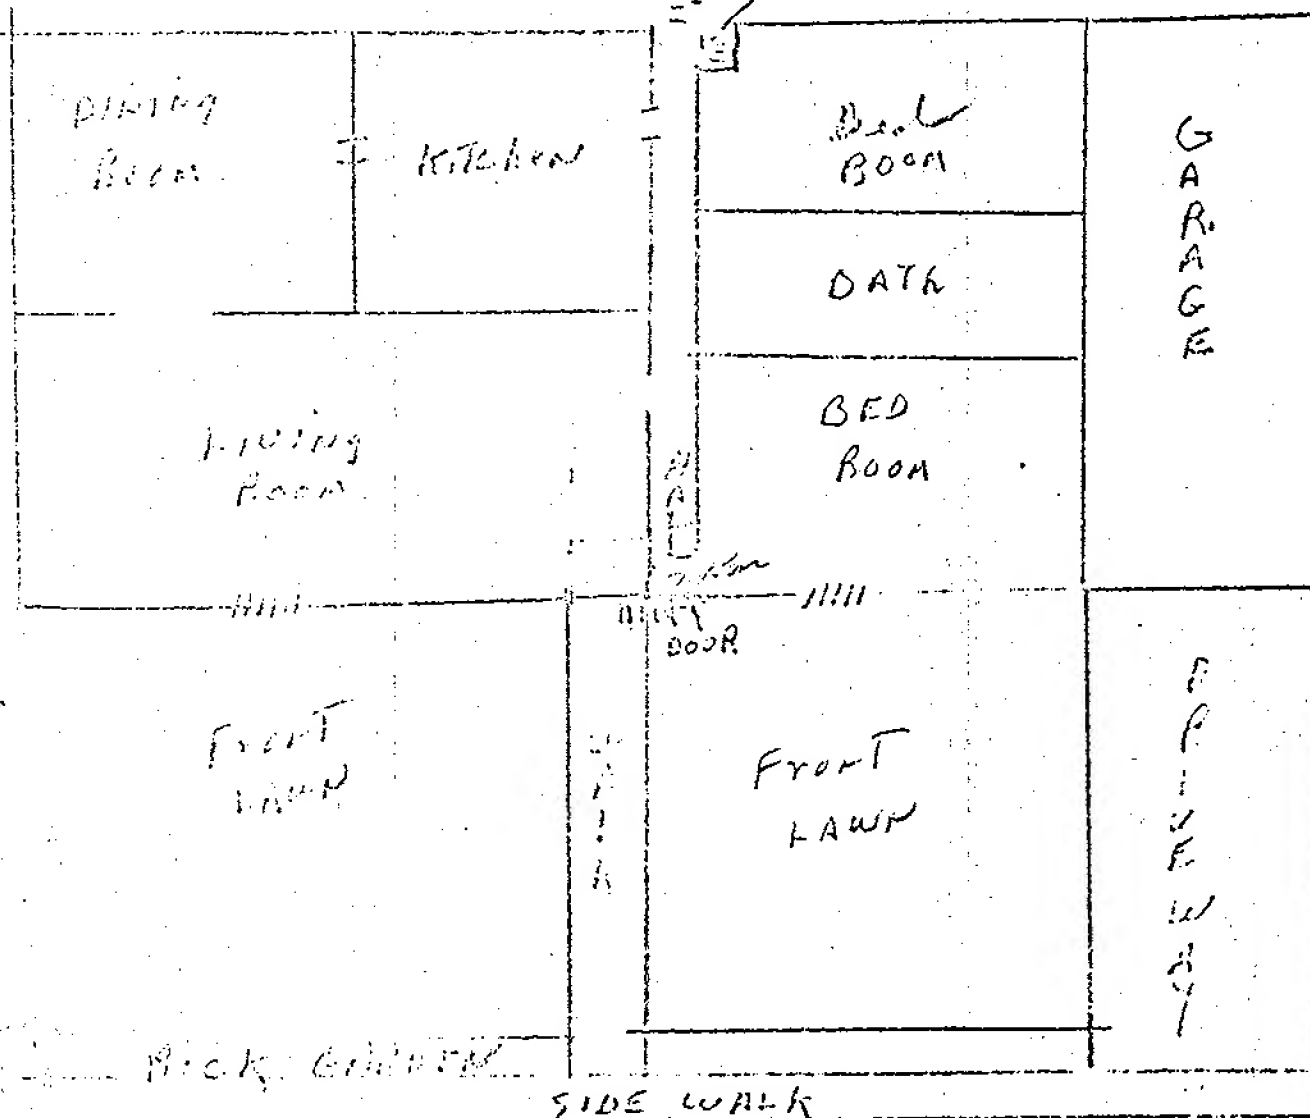 DiNiNg
Room
KiTcheN
Bed
ROOM
GARAGE
BATh
BED
ROOM
LiViNg
Room
HALL
DOOR
FronT
LAWN
WALK
FronT
LAWN
DRIVEWAY
GARDEN
SIDE WALK